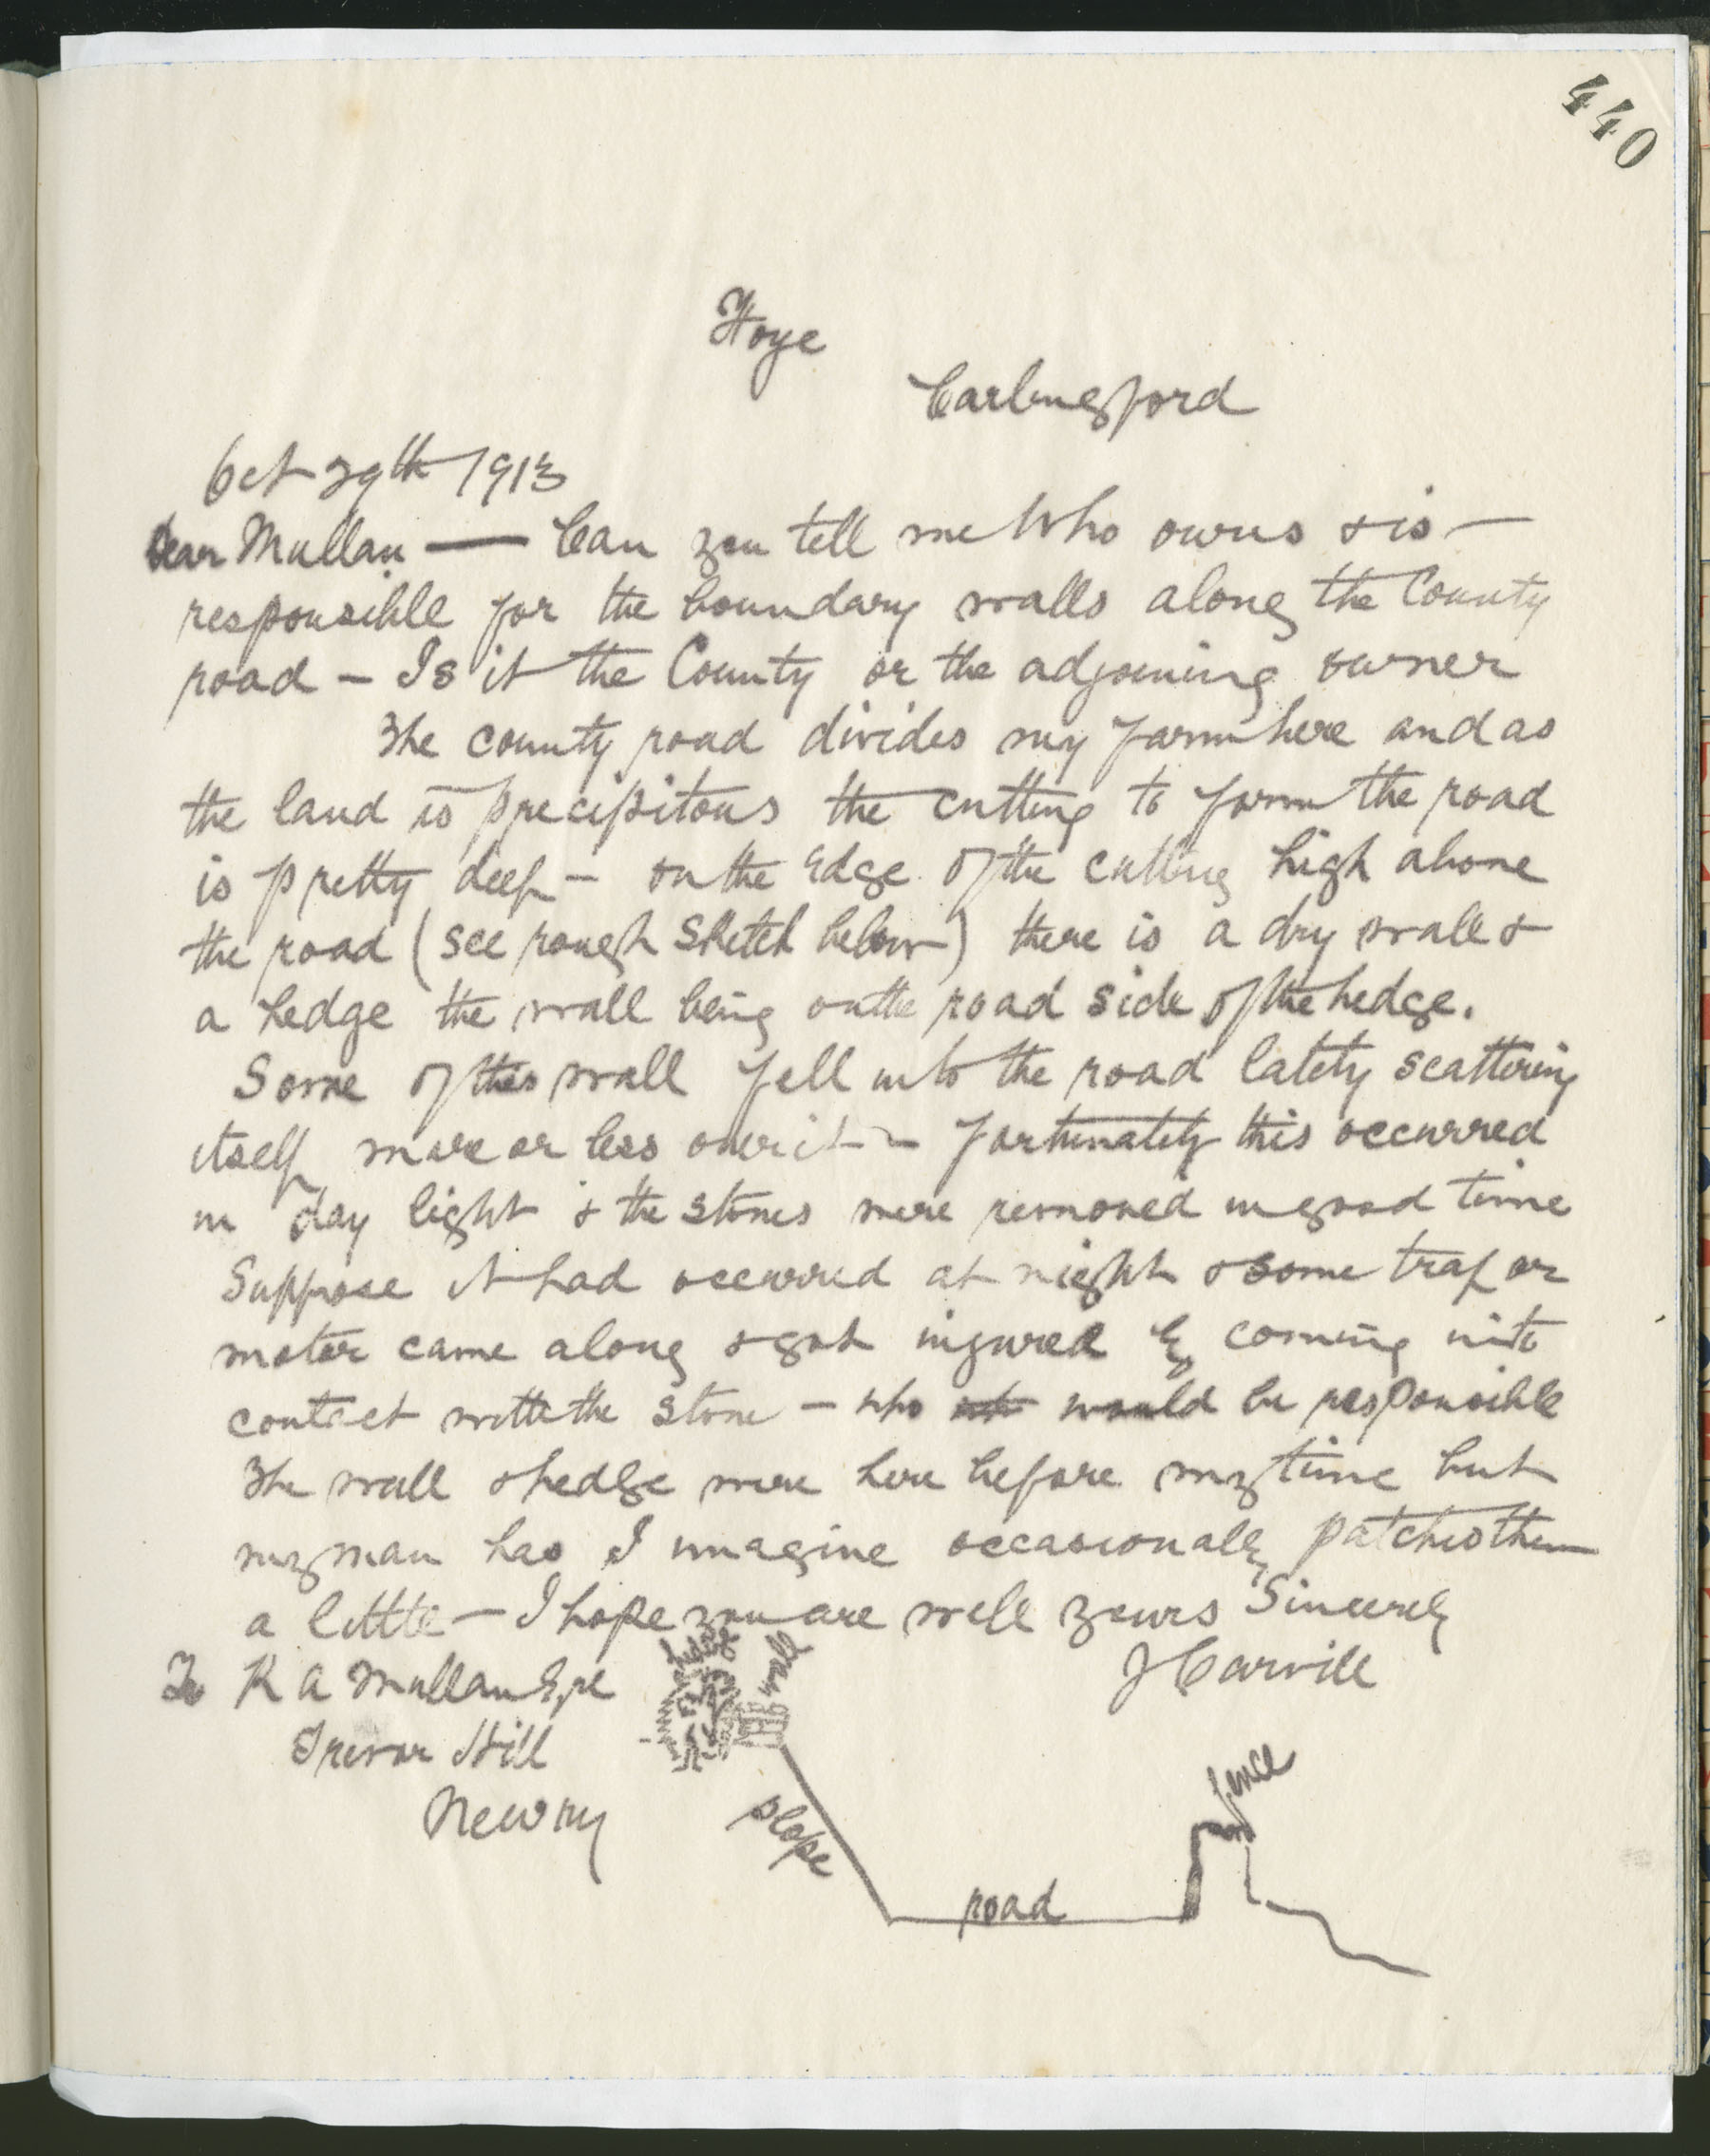 440
Foye
Carlingford
Oct 29th 1913
Dear Mullan — Can you tell me Who owns & is —
responsible for the boundary walls along the County
road – Is it the County or the adjoining owner
The county road divides my farm here and as
the land is precipitous the cutting to form the road
is pretty deep – on the Edge of the cutting high above
the road (see rough Sketch below) there is a dry wall &
a hedge the wall being on the road side of the hedge.
Some of this wall fell into the road lately scattering
itself more or less over it – fortunately this occurred
in day light & the stones were removed in good time
Suppose it had occurred at night & some trap or
motor came along & got injured by coming into
contact with the stone – who would be responsible
The wall & hedge were here before my time but
my man has I imagine occasionally patched them
a little – I hope you are well yours Sincerely
J Carvill
To R A Mullan Esqre
Trevor Hill
Newry
hedge
wall
slope
road
fence